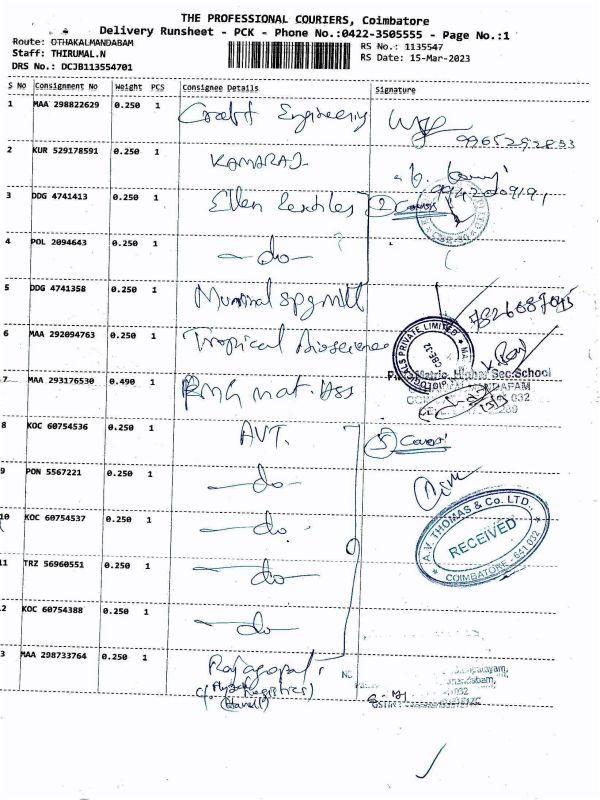 THE PROFESSIONAL COURIERS, Coimbatore
Delivery Runsheet - PCK - Phone No.:0422-3505555 - Page No.:1
Route: OTHAKALMANDABAM
Staff: THIRUMAL.N
DRS No.: DCJB113554701
RS No.: 1135547
RS Date: 15-Mar-2023
S No Consignment No Weight PCS Consignee Details Signature
1 MAA 298822629 0.250 1 Craft Engineering 9965292853
2 KUR 529178591 0.250 1 KAMARAJ
3 DDG 4741413 0.250 1 Ellen Textiles 2 Covers
4 POL 2094643 0.250 1 -do-
5 DDG 4741358 0.250 1 Spg mill
6 MAA 292094763 0.250 1 Tropical Bioscience
PRIVATE LIMITED
CBE-32
Sec.School
7 MAA 293176530 0.490 1 mat. Hss
032
8 KOC 60754536 0.250 1 AVT. 5 Cover
9 PON 5567221 0.250 1 -do-
10 KOC 60754537 0.250 1 -do-
A.V. THOMAS & Co. LTD.,
RECEIVED
COIMBATORE - 641 032
11 TRZ 56960551 0.250 1 -do-
2 KOC 60754388 0.250 1 -do-
3 MAA 298733764 0.250 1 Rajagopal